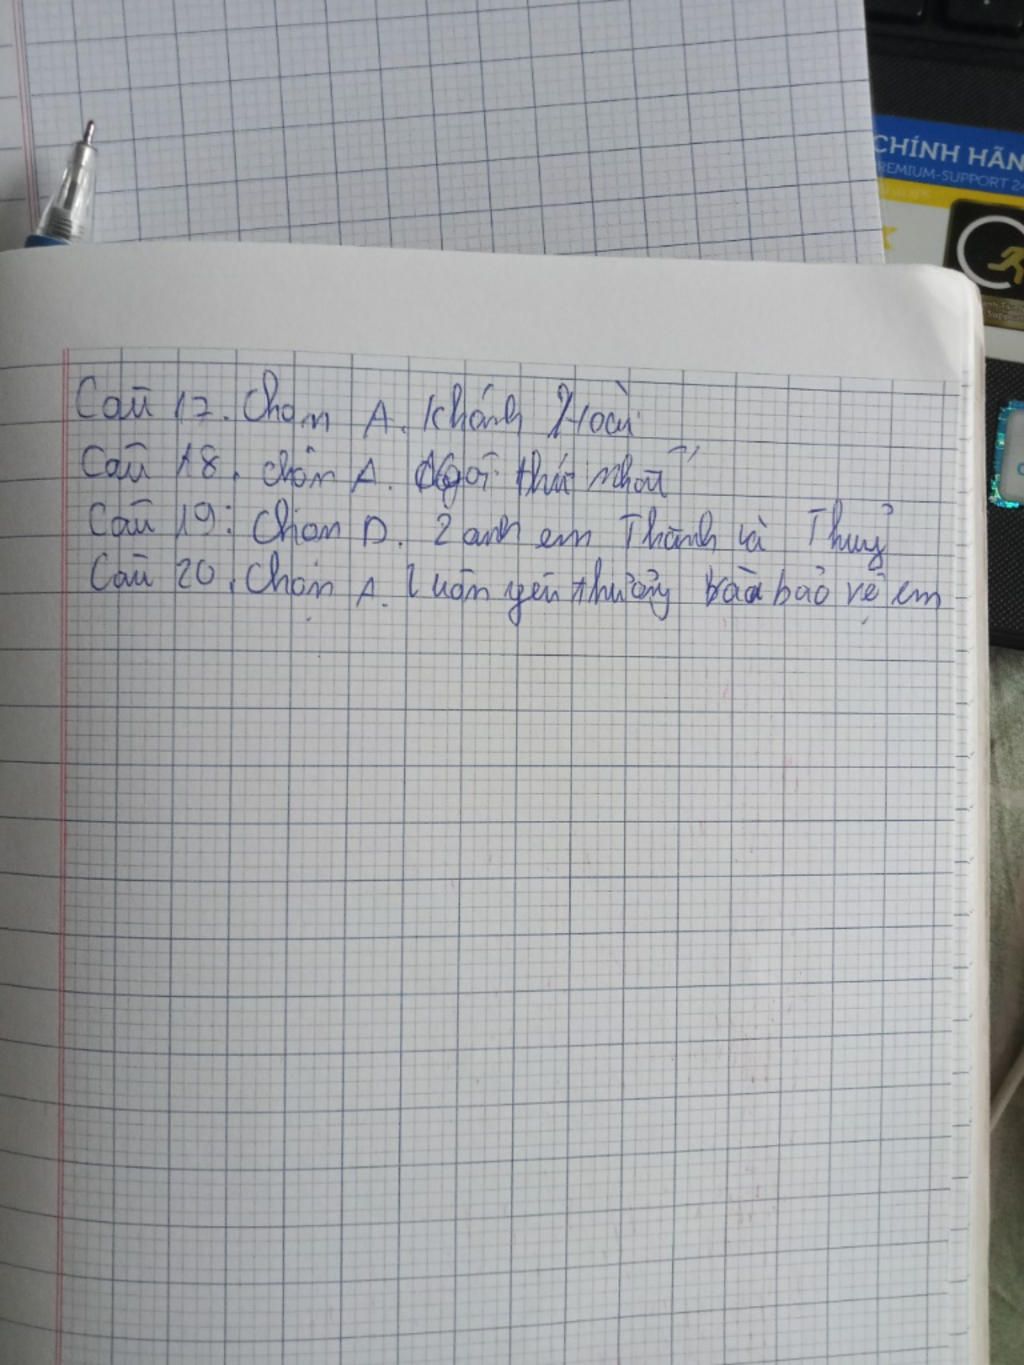 CHÍNH HÃN
REMIUM-SUPPORT 24
Câu 17. Chọn A. Khánh Hoài
Câu 18. chọn A. Ngôi thứ nhất
Câu 19: Chọn D. 2 anh em Thành và Thuỷ
Câu 20. Chọn A. Luôn yêu thương và bảo vệ em